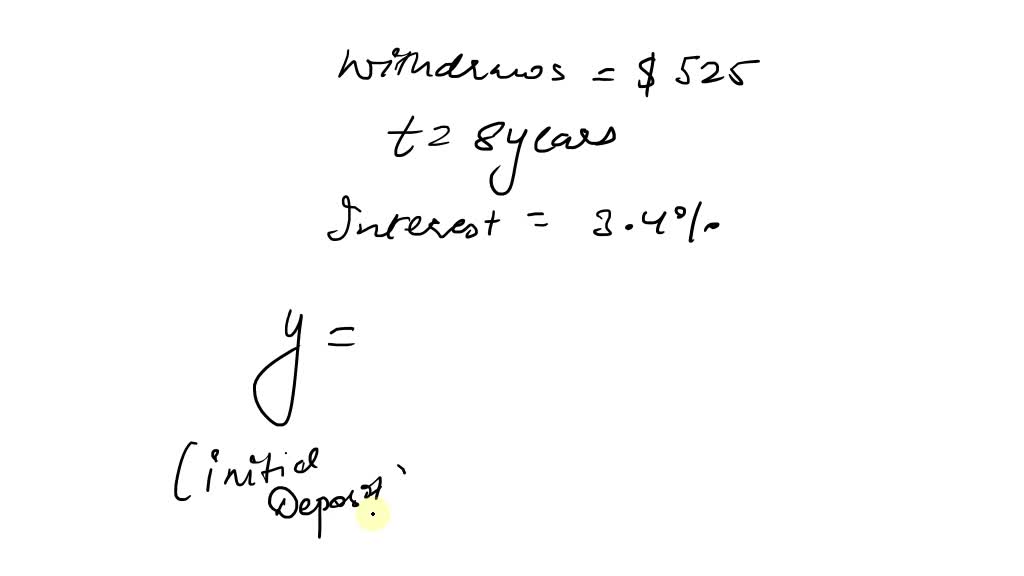 Withdraws = $ 525
t = 8 years
Interest = 3.4%
y =
(initial
Deposit)